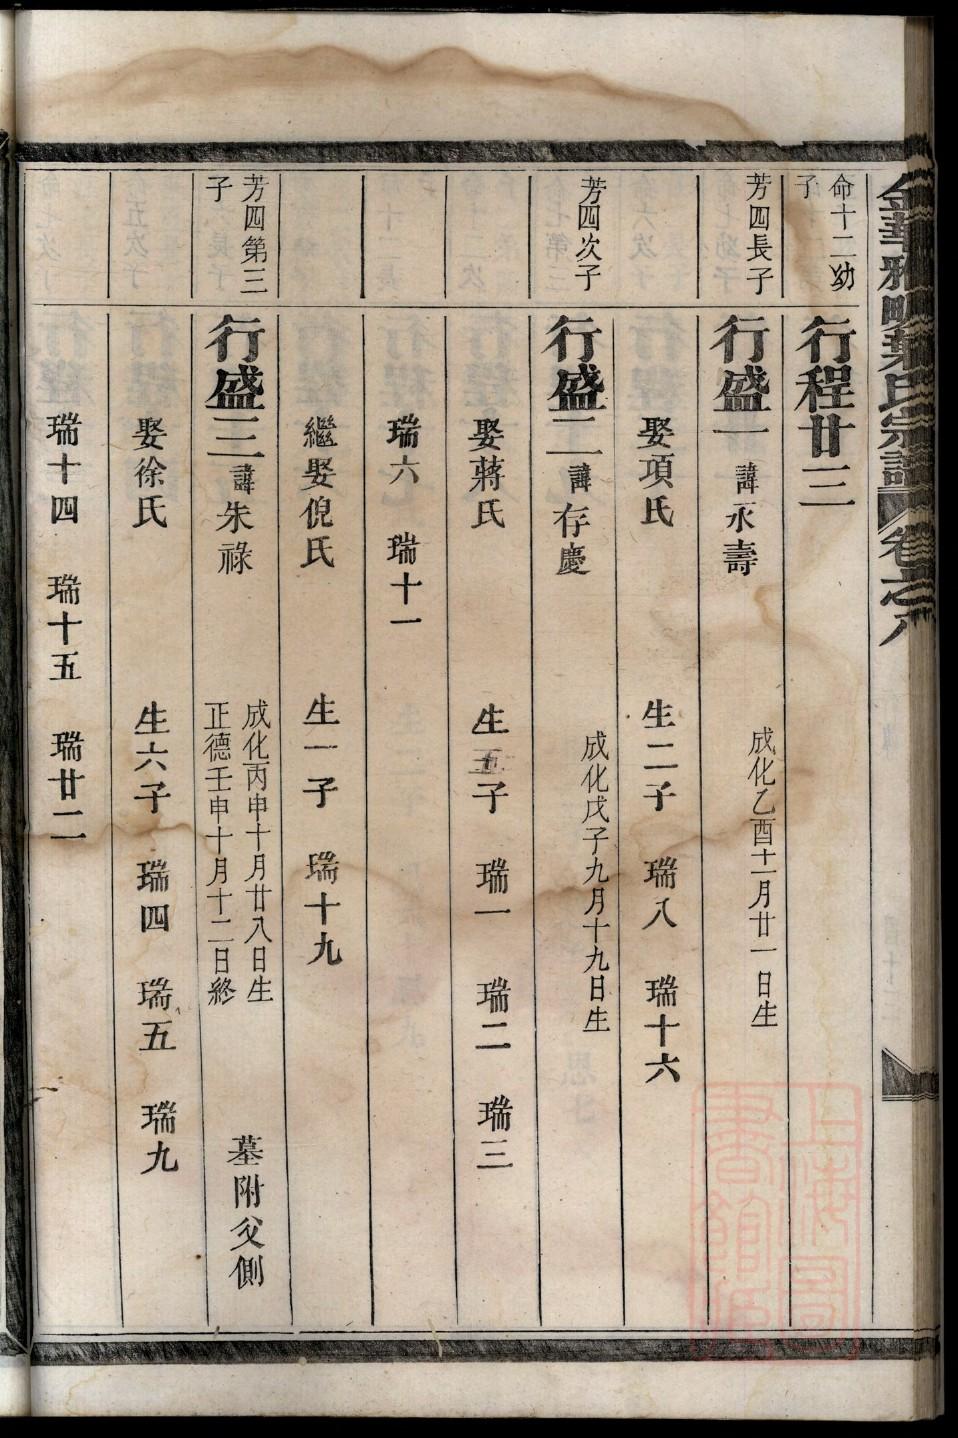 金華雅畈葉氏宗譜 卷之八
命十二幼子
行程廿三
芳四長子
行盛一 諱永壽 成化乙酉十一月廿一日生
娶項氏 生二子 瑞八 瑞十六
芳四次子
行盛二 諱存慶 成化戊子九月十九日生
娶蔣氏 生五子 瑞一 瑞二 瑞三
瑞六 瑞十一
繼娶倪氏 生一子 瑞十九
芳四第三子
行盛三 諱朱祿 成化丙申十月廿八日生
正德壬申十月十二日終 墓附父側
娶徐氏 生六子 瑞四 瑞五 瑞九
瑞十四 瑞十五 瑞廿二
上海圖書館藏